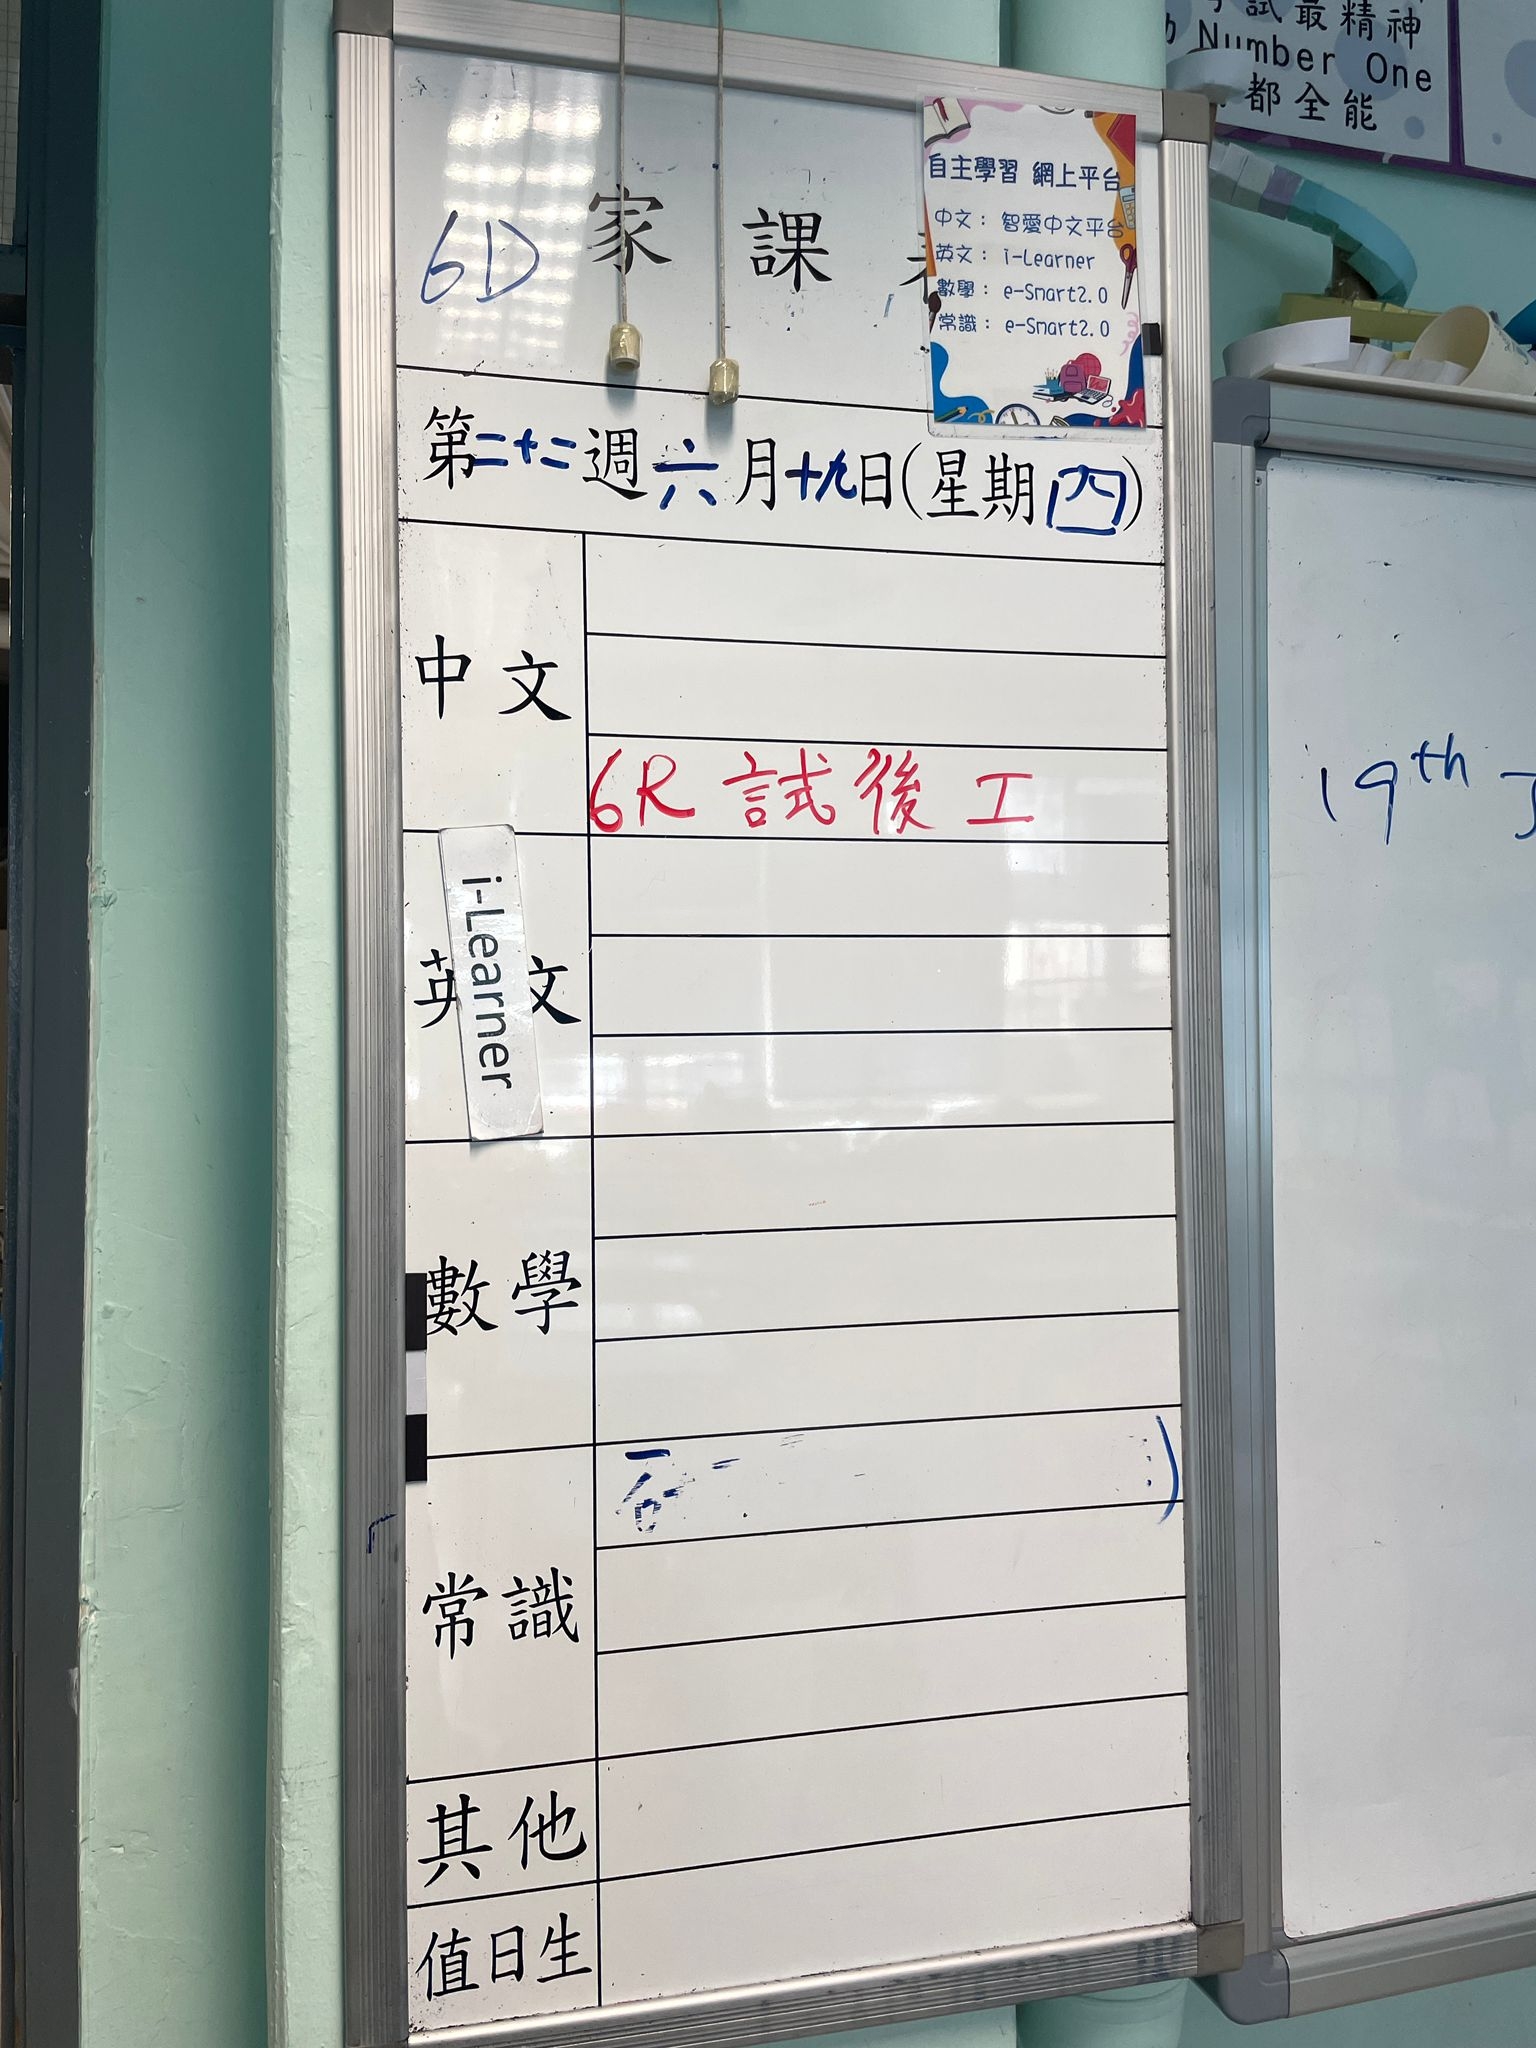 試最精神
Number One
都全能
6D 家課
自主學習 網上平台
中文： 智愛中文平台
英文： i-Learner
數學： e-Smart2.0
常識： e-Smart2.0
第二十二週六月十九日(星期四)
中文
6R 試後工
英文
i-Learner
19th
數學
常識
:)
其他
值日生